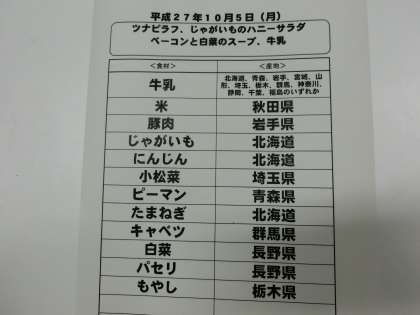 平成27年10月5日（月）
ツナピラフ、じゃがいものハニーサラダ
ベーコンと白菜のスープ、牛乳
＜食材＞ ＜産地＞
牛乳 北海道、青森、岩手、宮城、山
形、埼玉、栃木、群馬、神奈川、
静岡、千葉、福島のいずれか
米 秋田県
豚肉 岩手県
じゃがいも 北海道
にんじん 北海道
小松菜 埼玉県
ピーマン 青森県
たまねぎ 北海道
キャベツ 群馬県
白菜 長野県
パセリ 長野県
もやし 栃木県